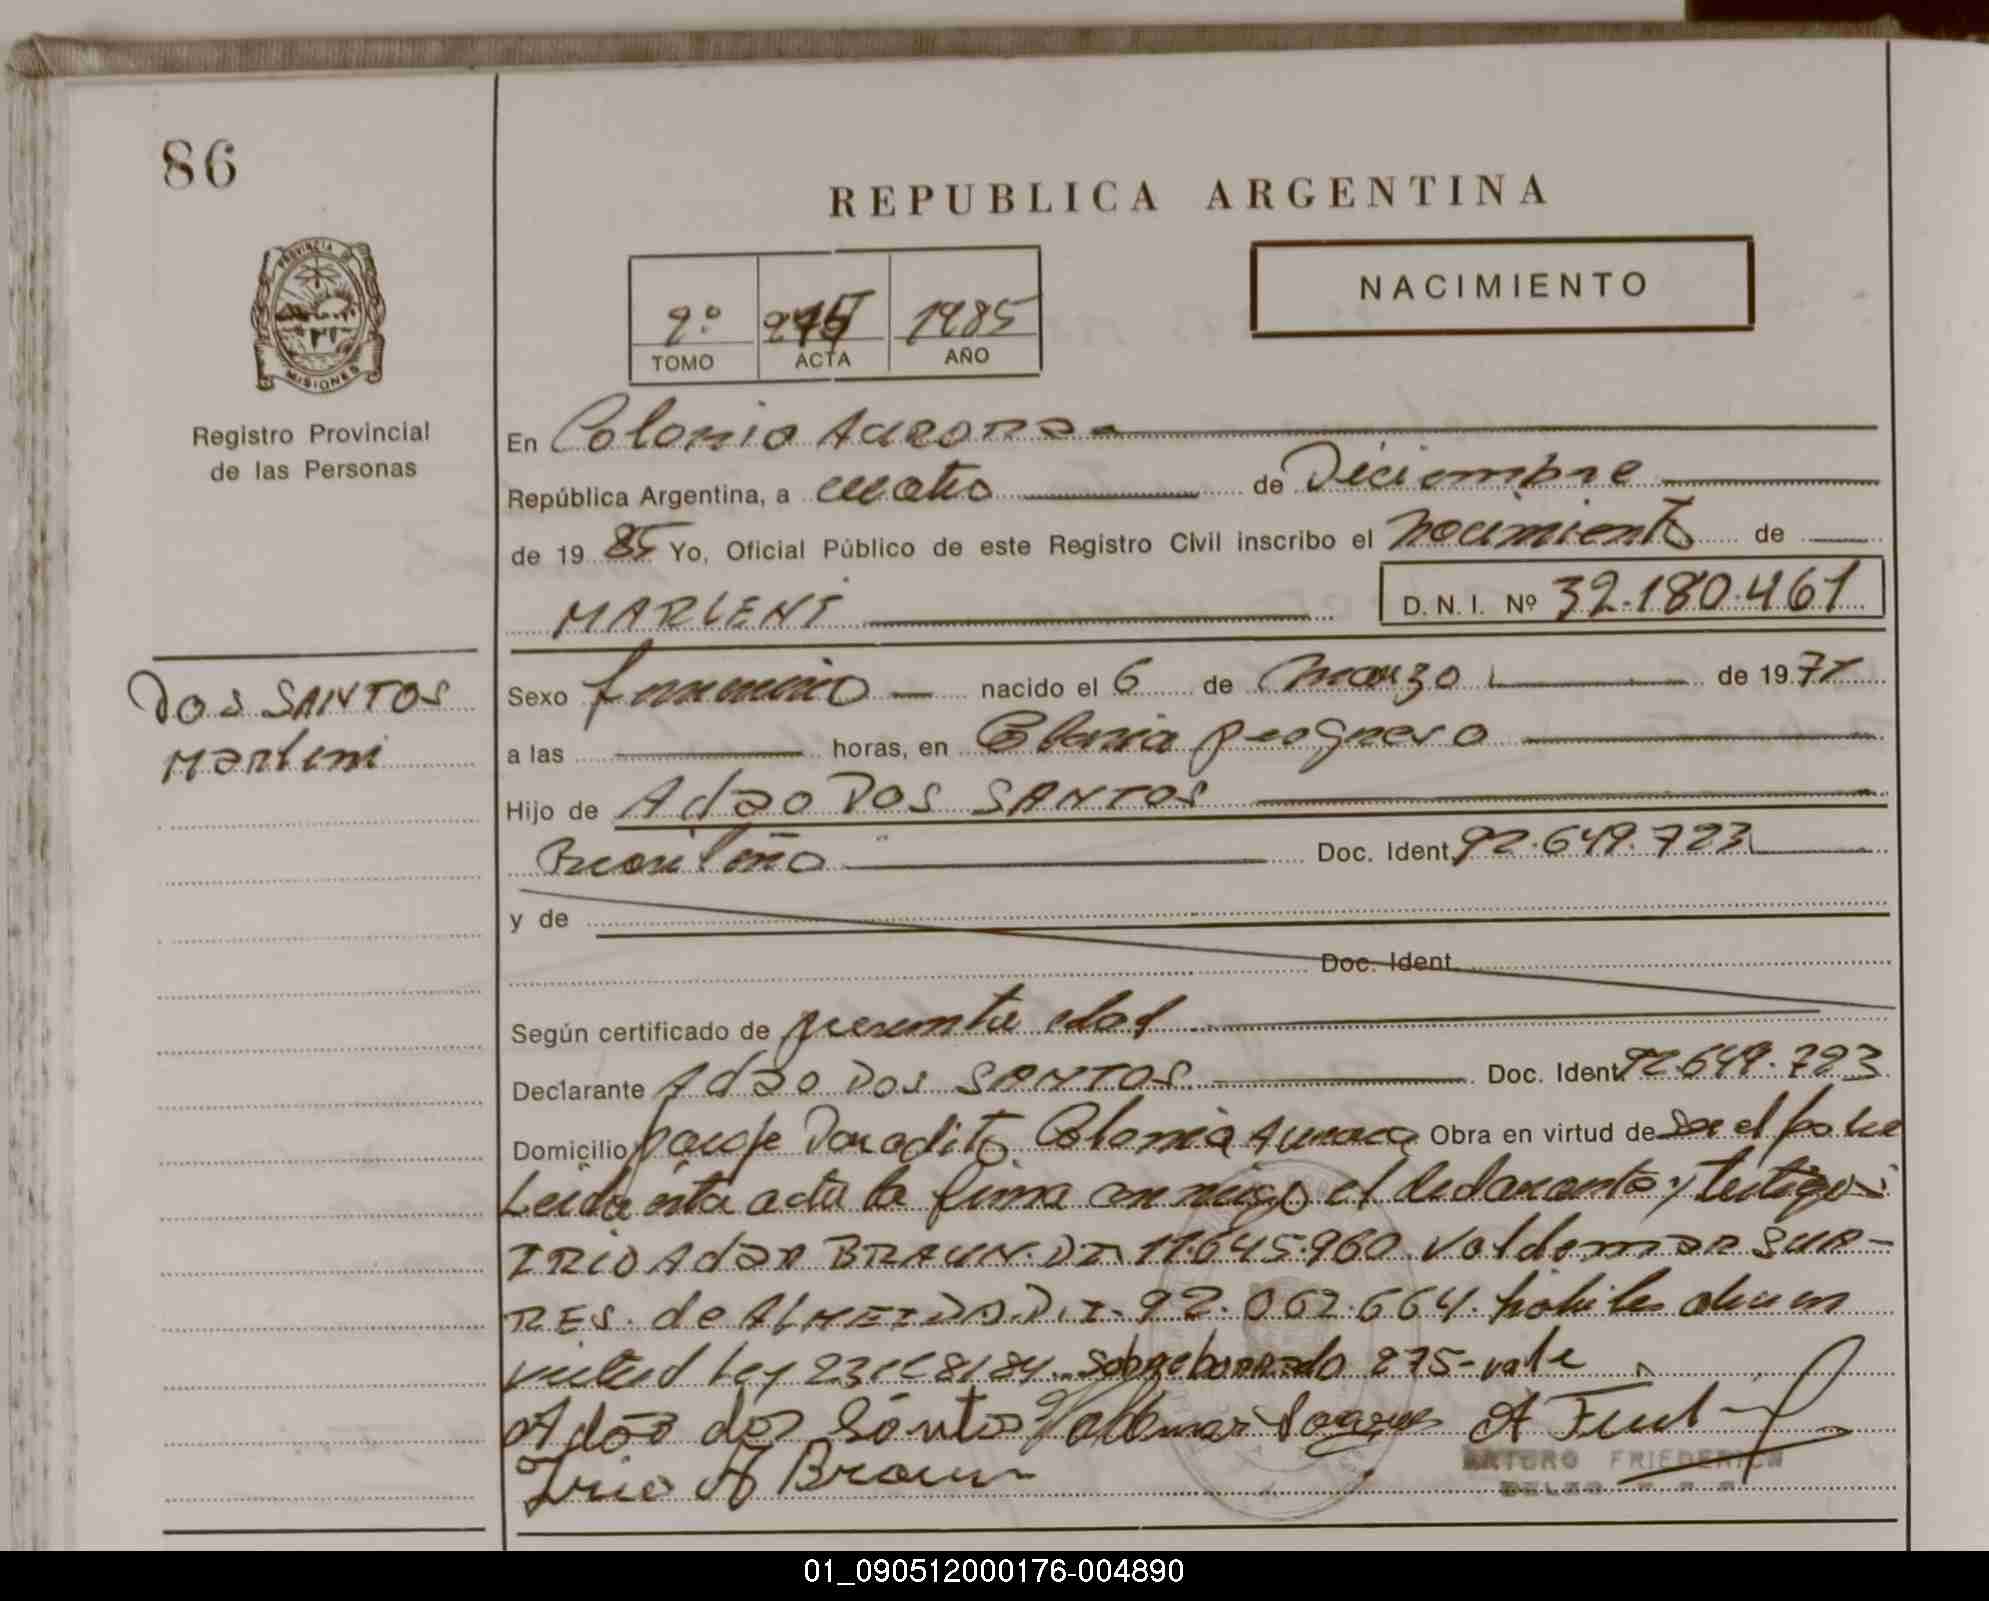 86
REPUBLICA ARGENTINA
NACIMIENTO
PROVINCIA DE
MISIONES
2º 275 1985
TOMO ACTA AÑO
Registro Provincial
de las Personas
En Colonia Aurora
República Argentina, a cuatro de Diciembre
de 19 85 Yo, Oficial Público de este Registro Civil inscribo el nacimiento de
MARLENI D.N.I. Nº 32.180.461
DOS SANTOS
Marleni
Sexo femenino nacido el 6 de marzo de 1971
a las horas, en Colonia
Hijo de Adao DOS SANTOS
Brasileño Doc. Ident. 92.649.723
y de
Doc. Ident.
Según certificado de presunta edad
Declarante Adao DOS SANTOS Doc. Ident. 92.649.723
Domicilio Paraje Doradito Colonia Aurora Obra en virtud de ser el padre
Leida esta acta la firma conmigo el declarante y testigos:
IRIO Adan BRAUN. DI. 11.645.960. Valdemar SUA-
RES. de ALMEIDA. D.I. 92.062.664. habiles
virtud Ley sobreborrado 275-vale
Adão dos Santos Valdemar Soares A Fried
Irio A Braun
ARTURO FRIEDERICH
01_090512000176-004890